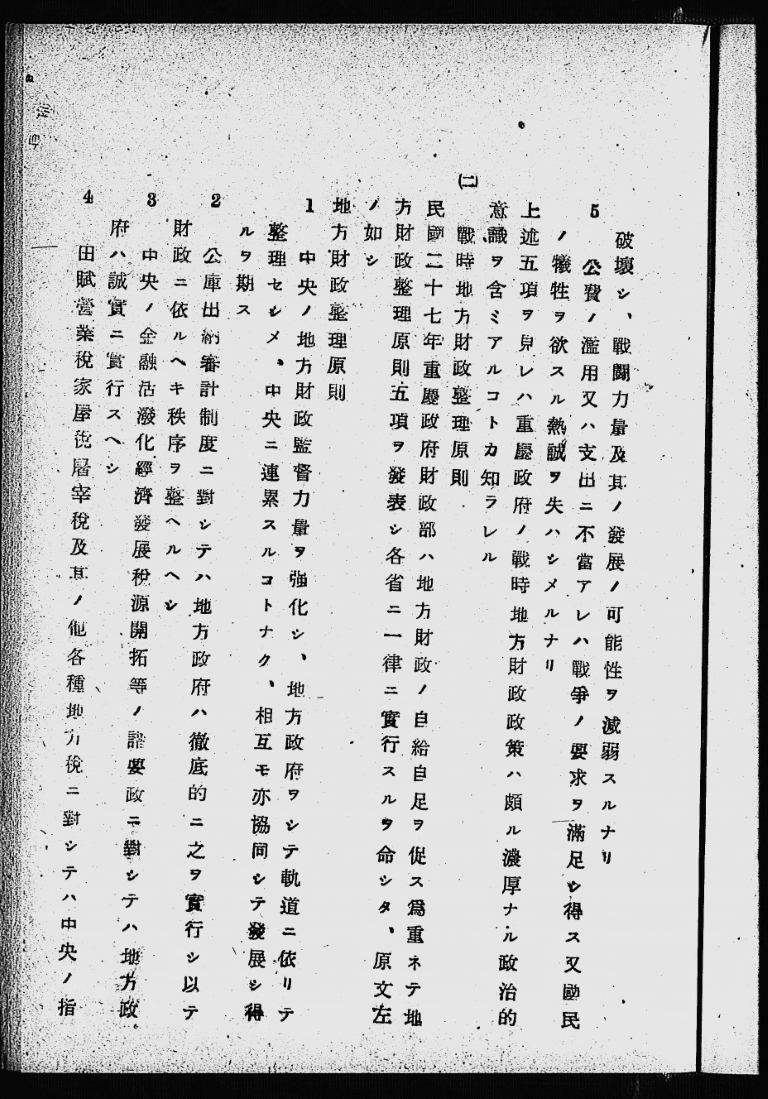 破壞シ、戰鬪力量及其ノ發展ノ可能性ヲ減弱スルナリ
5 公費ノ濫用又ハ支出ニ不當アレハ戰爭ノ要求ヲ滿足シ得ス又國民
ノ犧牲ヲ欲スル熱誠ヲ失ハシメルナリ
上述五項ヲ見レハ重慶政府ノ戰時地方財政政策ハ頗ル濃厚ナル政治的
意識ヲ含ミアルコトカ知ラレル
㈡ 戰時地方財政整理原則
民國二十七年重慶政府財政部ハ地方財政ノ自給自足ヲ促ス爲重ネテ地
方財政整理原則五項ヲ發表シ各省ニ一律ニ實行スルヲ命シタ、原文左
ノ如シ
地方財政整理原則
1 中央ノ地方財政監督力量ヲ强化シ、地方政府ヲシテ軌道ニ依リテ
整理セシメ、中央ニ連累スルコトナク、相互モ亦協同シテ發展シ得
ルヲ期ス
2 公庫出納審計制度ニ對シテハ地方政府ハ徹底的ニ之ヲ實行シ以テ
財政ニ依ルヘキ秩序ヲ整ヘルヘシ
3 中央ノ金融活潑化經濟發展稅源開拓等ノ諸要政ニ對シテハ地方政
府ハ誠實ニ實行スヘシ
4 田賦營業稅家屋稅屠宰稅及其ノ他各種地方稅ニ對シテハ中央ノ指